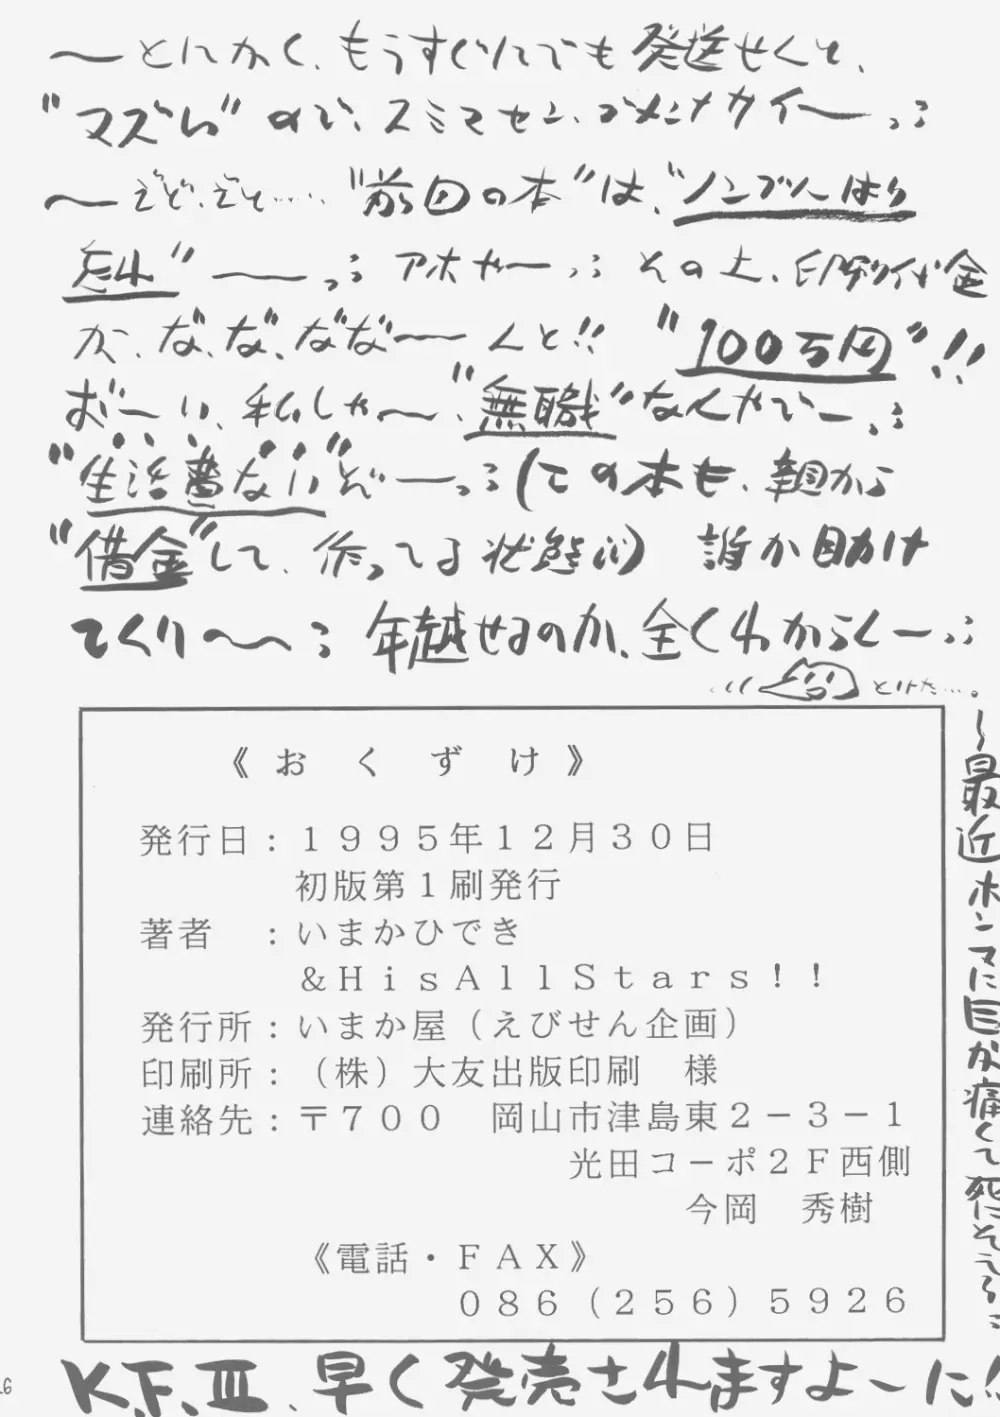 〜とにかく、もうすぐにでも発送せんと、
"マズい"ので、スミマセン、ゴメンナサイーっ;
〜ぞど、ぞど……"前回の本"は、"ノンブルはり
忘れ"――っ; アホやーっ; その上、印刷代金
が、な、な、なな〜んと!! "100万円"!!
おーい、私しゃ〜、"無職"なんやでーっ;
"生活費ない"ぞーっ;(この本も、親から
"借金"して、作ってる状態(;)) 誰か助け
てくり〜〜; 年越せるのか、全くわからんーっ;
とけた…。
《おくずけ》
発行日：１９９５年１２月３０日
初版第１刷発行
著者　：いまかひでき
＆ＨｉｓＡｌｌＳｔａｒｓ！！
発行所：いまか屋（えびせん企画）
印刷所：（株）大友出版印刷　様
連絡先：〒７００　岡山市津島東２－３－１
光田コーポ２Ｆ西側
今岡　秀樹
《電話・ＦＡＸ》
０８６（２５６）５９２６
〜最近ホンマに目が痛くて死にそう〜;
K.F.III、早く発売されますよーに!!
26